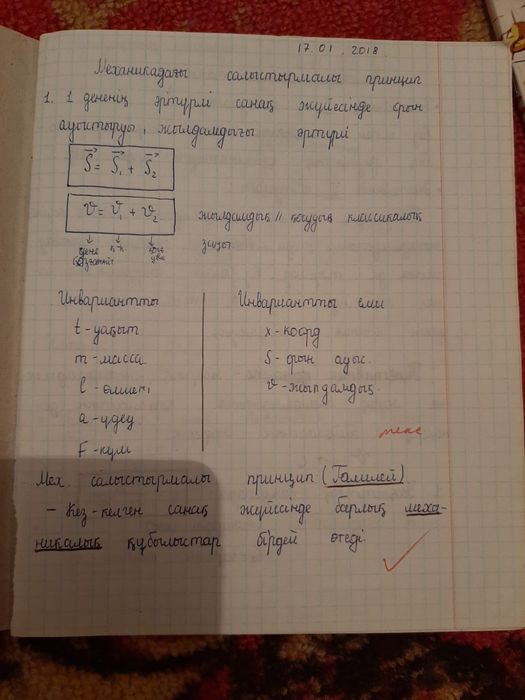 17.01.2018
Механикадағы салыстырмалы принцип
1. 1 дененің әртүрлі санақ жүйесінде орын
ауыстыруы, жылдамдығы әртүрлі
S⃗ = S⃗₁ + S⃗₂
υ = υ₁ + υ₂ жылдамдық // қосудың классикалық
заңы.
дене
Инвариантты
t - уақыт
m - масса
l - өлшем
a - үдеу
F - күш
Инвариантты емес
x - коорд
S - орын ауыс.
υ - жылдамдық
Мех. салыстырмалы принцип (Галилей).
- Кез-келген санақ жүйесінде барлық меха-
никалық құбылыстар бірдей өтеді.